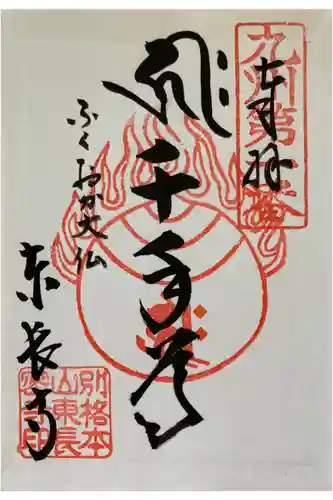 奉拝
九州第一番
千手尊
ふくおか大仏
東長寺
別格本
山東長
密寺印